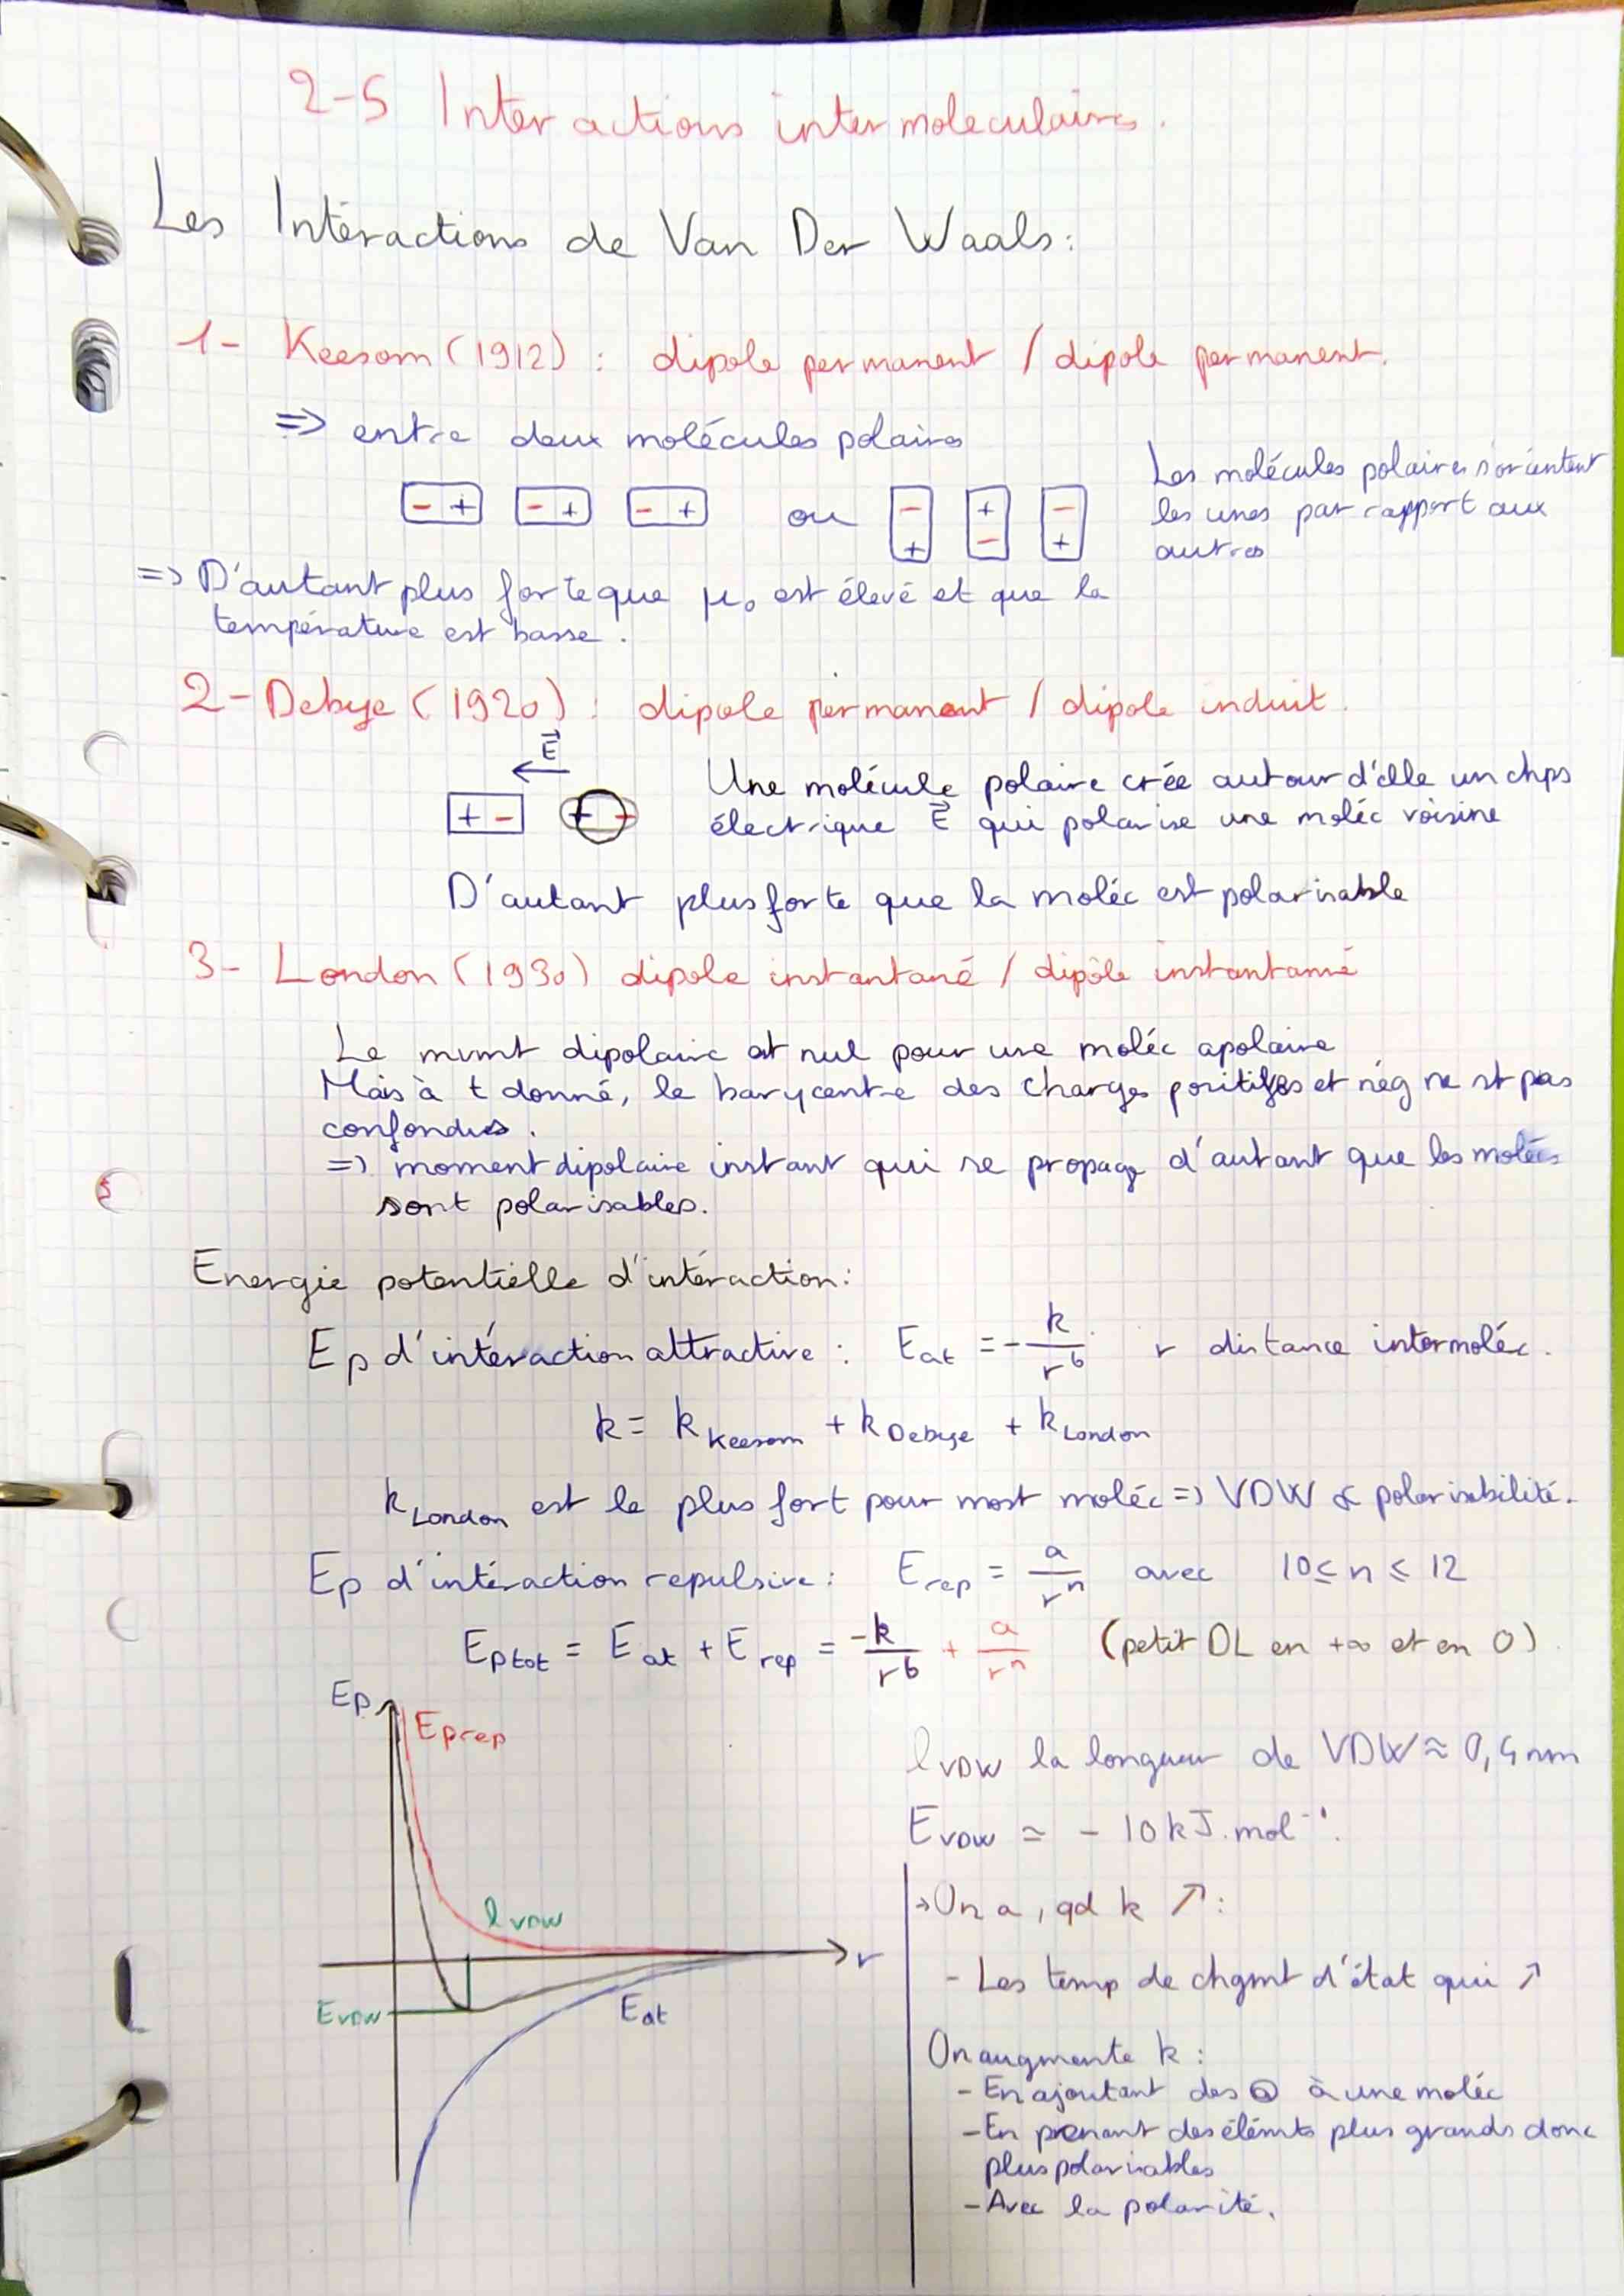 2-5 Interactions intermoleculaires.
Les Intéractions de Van Der Waals:
1- Keesom (1912) : dipole permanent / dipole permanent.
=> entre deux molécules polaires
- + - + - + ou - + + - - +
Les molécules polaires s'orientent
les unes par rapport aux
autres
=> D'autant plus forte que μ₀ est élevé et que la
température est basse.
2- Debye (1920) : dipole permanent / dipole induit.
E
+ - + -
Une molécule polaire crée autour d'elle un chps
électrique E qui polarise une moléc voisine
D'autant plus forte que la moléc est polarisable
3- London (1930) dipole instantané / dipôle instantané
Le mvmt dipolaire est nul pour une moléc apolaire
Mais à t donné, le barycentre des charges positifs et nég ne st pas
confondus.
=> moment dipolaire instant qui se propage d'autant que les molécs
sont polarisables.
Energie potentielle d'intéraction:
Ep d'intéraction attractive : Eat = - k/r⁶ r distance intermoléc.
k = k Keesom + k Debye + k London
k London est le plus fort pour most moléc => VDW ∝ polarisabilité.
Ep d'intéraction repulsive : E rep = a/rⁿ avec 10 ≤ n ≤ 12
Eptot = Eat + E rep = -k/r⁶ + a/rⁿ (petit DL en +∞ et en 0)
Ep
Eprep
l VDW
r
E VDW
Eat
l VDW la longueur de VDW ≈ 0,4 nm
E VDW ≃ - 10 kJ.mol⁻¹.
→ On a, qd k ↗ :
- Les temp de chgmt d'état qui ↗
On augmente k :
- En ajoutant des à une moléc
- En prenant des élémts plus grands donc
plus polarisables
- Avec la polarité.